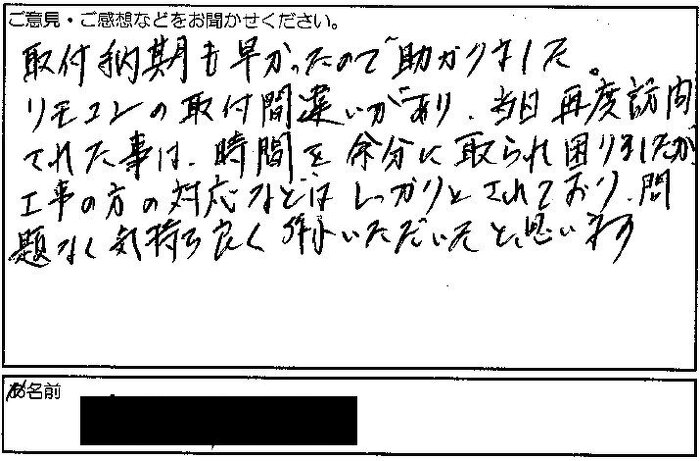 ご意見・ご感想などをお聞かせください。
取付納期も早かったので助かりました。
リモコンの取付間違いがあり、当日再度訪問
された事は、時間を余分に取られ困りましたが
工事の方の対応などはしっかりとされており、問
題なく気持ち良く いただいたと思います
お名前